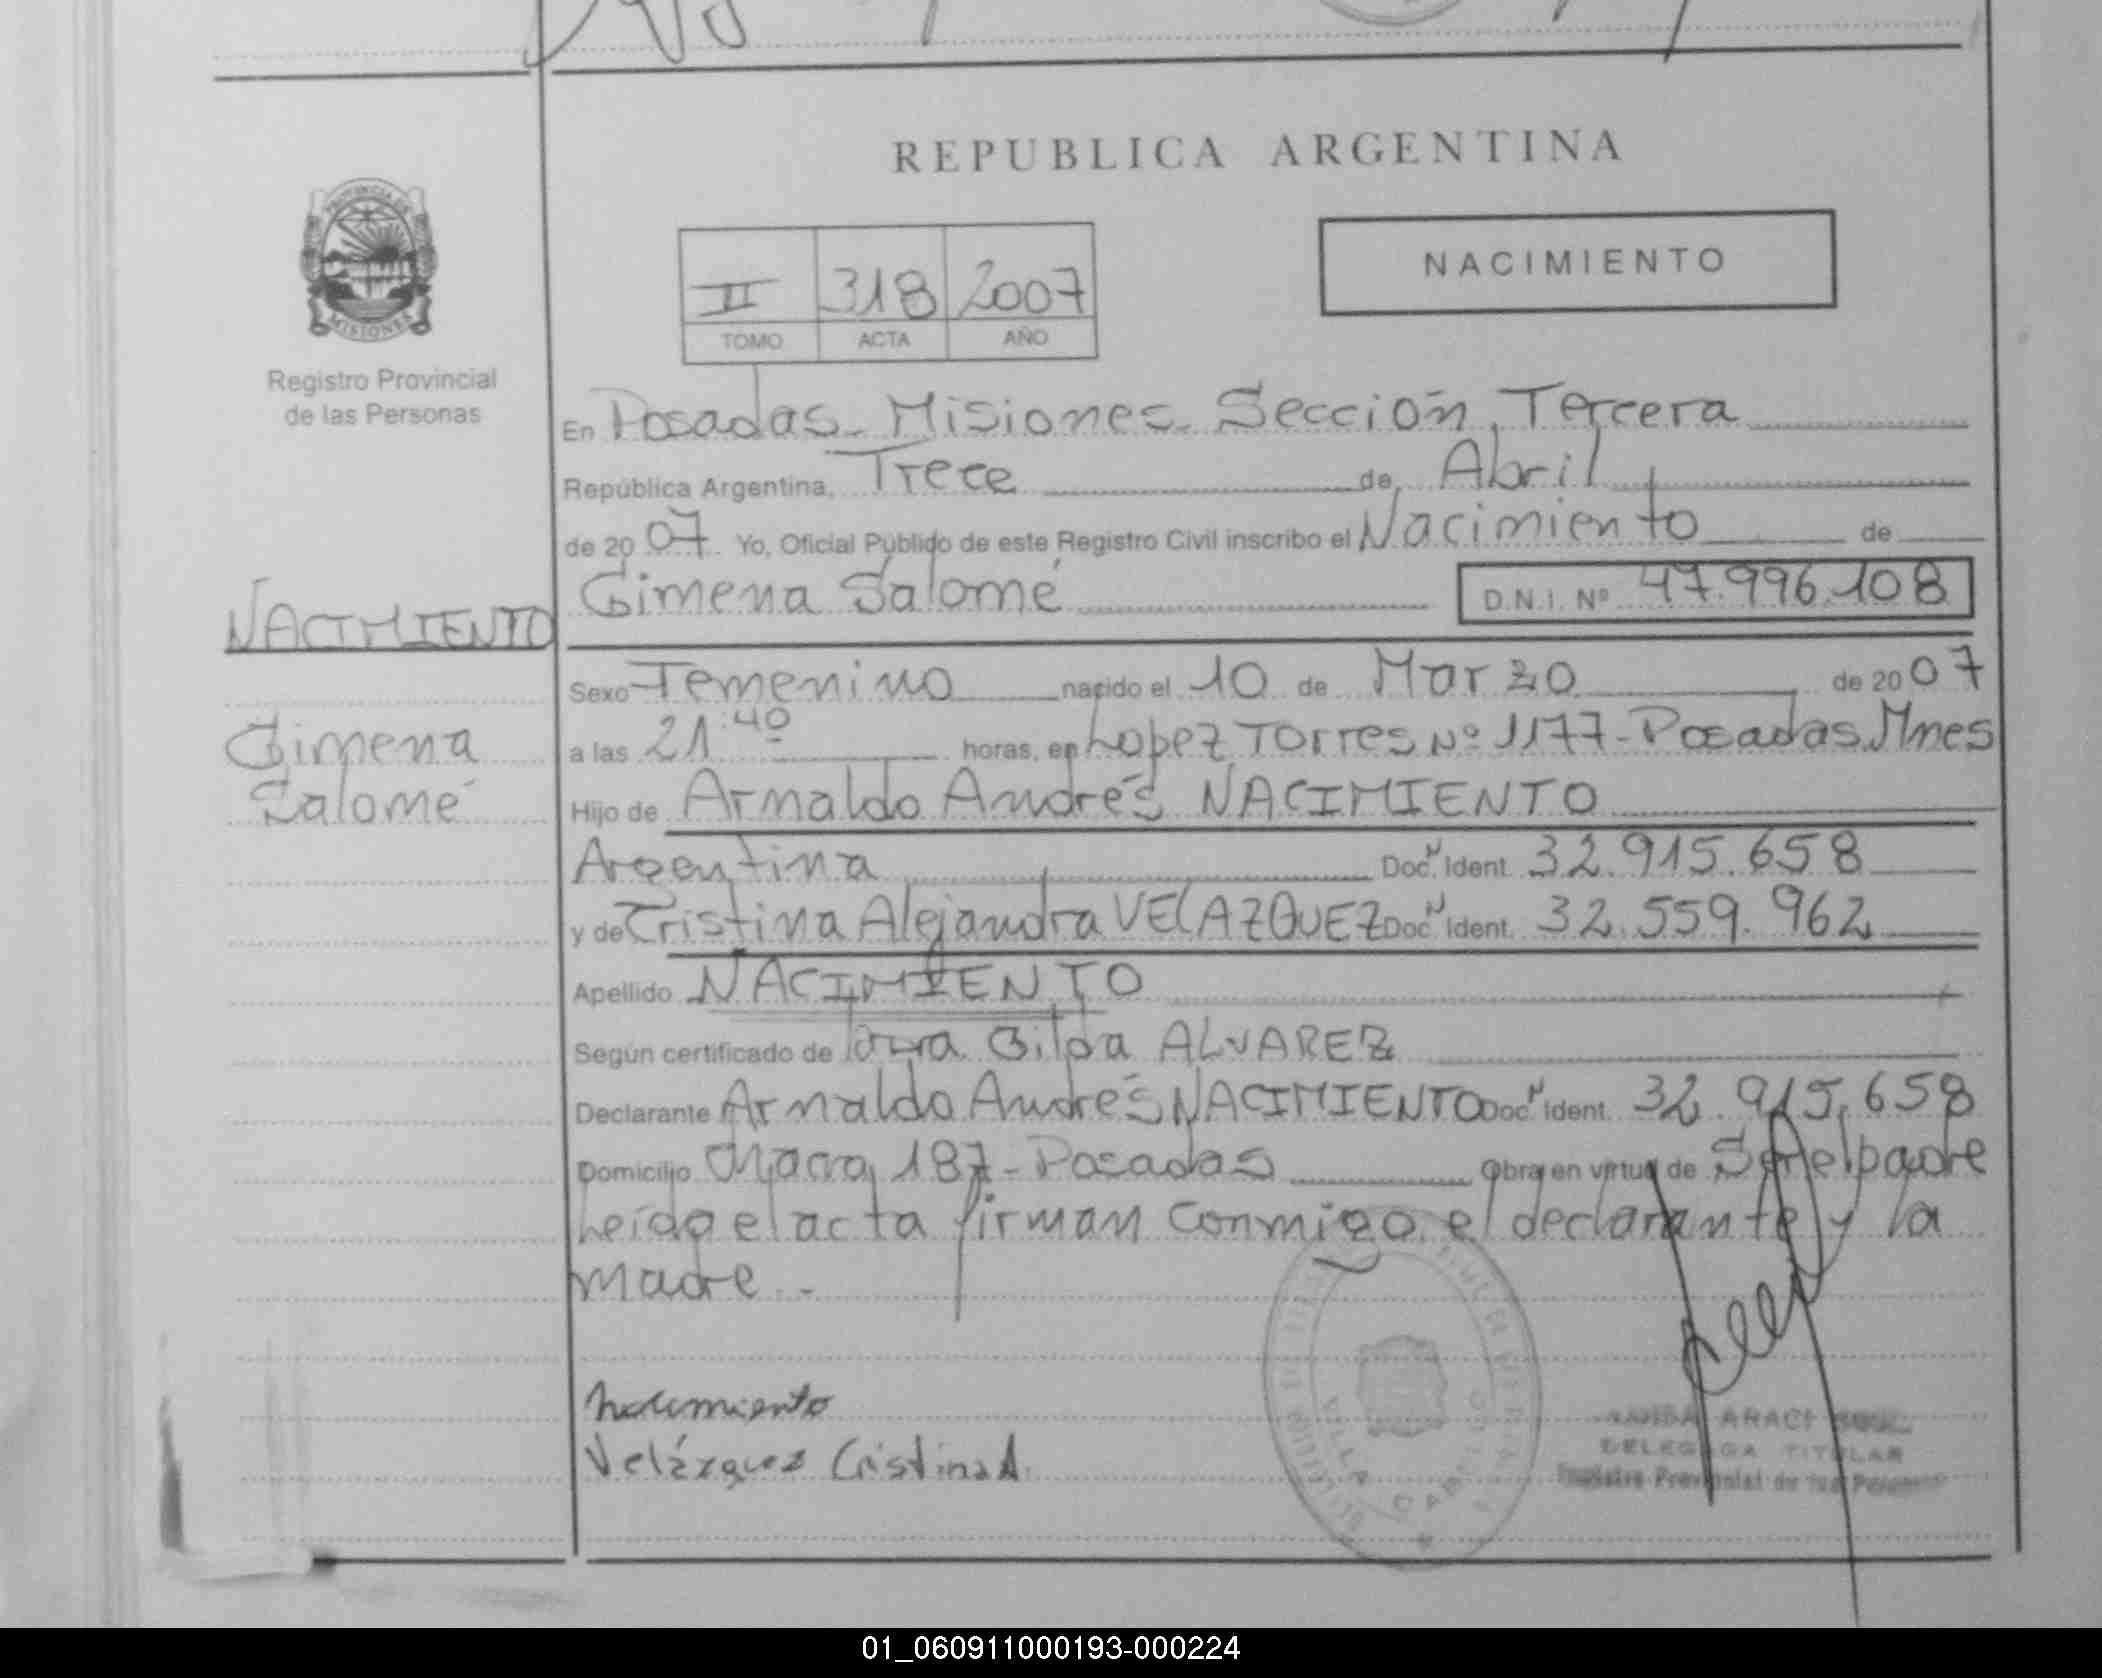 REPUBLICA ARGENTINA
PROVINCIA DE
MISIONES
Registro Provincial
de las Personas
NACIMIENTO
II 318 2007
TOMO ACTA AÑO
En Posadas - Misiones - Sección Tercera
República Argentina, Trece de Abril
de 2007. Yo, Oficial Público de este Registro Civil inscribo el Nacimiento de
Gimena Salomé D.N.I. Nº 47.996.108
NACIMIENTO
Gimena
Salomé
Sexo Femenino nacido el 10 de Marzo de 2007
a las 21:40 horas, en Lopez Torres Nº 1177 - Posadas. Mnes
Hijo de Arnaldo Andrés NACIMIENTO
Argentina Doc. Ident. 32.915.658
y de Cristina Alejandra VELAZQUEZ Doc. Ident. 32.559.962
Apellido NACIMIENTO
Según certificado de Gilda ALVAREZ
Declarante Arnaldo Andrés NACIMIENTO Doc. Ident. 32.915.658
Domicilio 187 - Posadas Obra en virtud de Ser el padre
Leída el acta firman conmigo el declarante y la
madre. -
Nacimiento
Velázquez Cristina A.
ARACI
DELEGADA TITULAR
Registro Provincial de las Personas
VILLA CABELLO
01_060911000193-000224